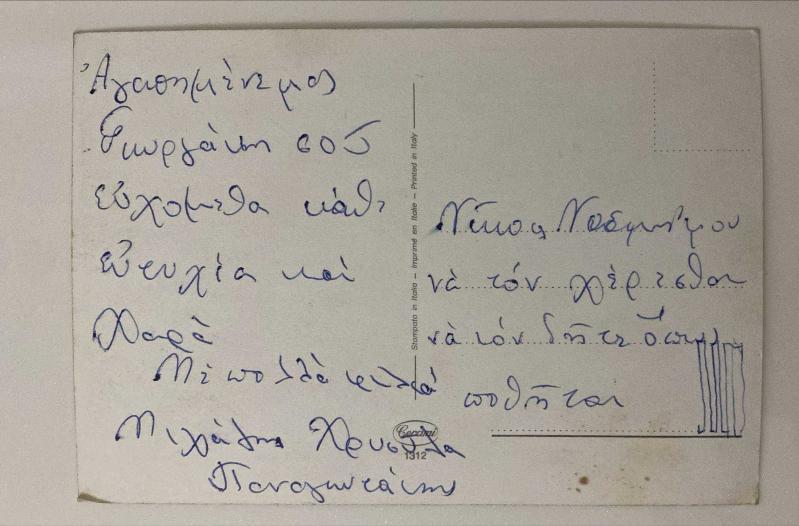 Ἀγαπημένε μας
Γιωργάκη σοῦ
εὐχόμεθα κάθε
εὐτυχία καὶ
Χαρὰ
Μὲ πολλὰ φιλιά
Μιχάλης Χρυσούλα
Παναγιωτάκης
Stampato in Italia — Imprimé en Italie — Printed in Italy
Cecami
1312
Νίκος
νὰ τόν χέρεσθαι
νὰ τόν δῆτε ὅπως
ποθῆται